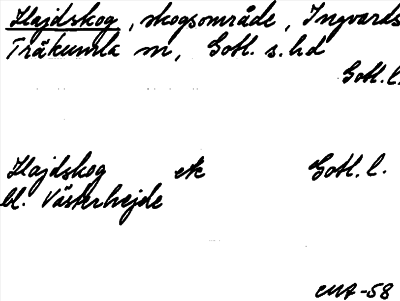 Hajdskog, skogsområde, Ingvards
Träkumla sn, Gotl. s. hd
Gotl. l.
Hajdskog ek Gotl. l.
bl. Västerhejde
CMA-58